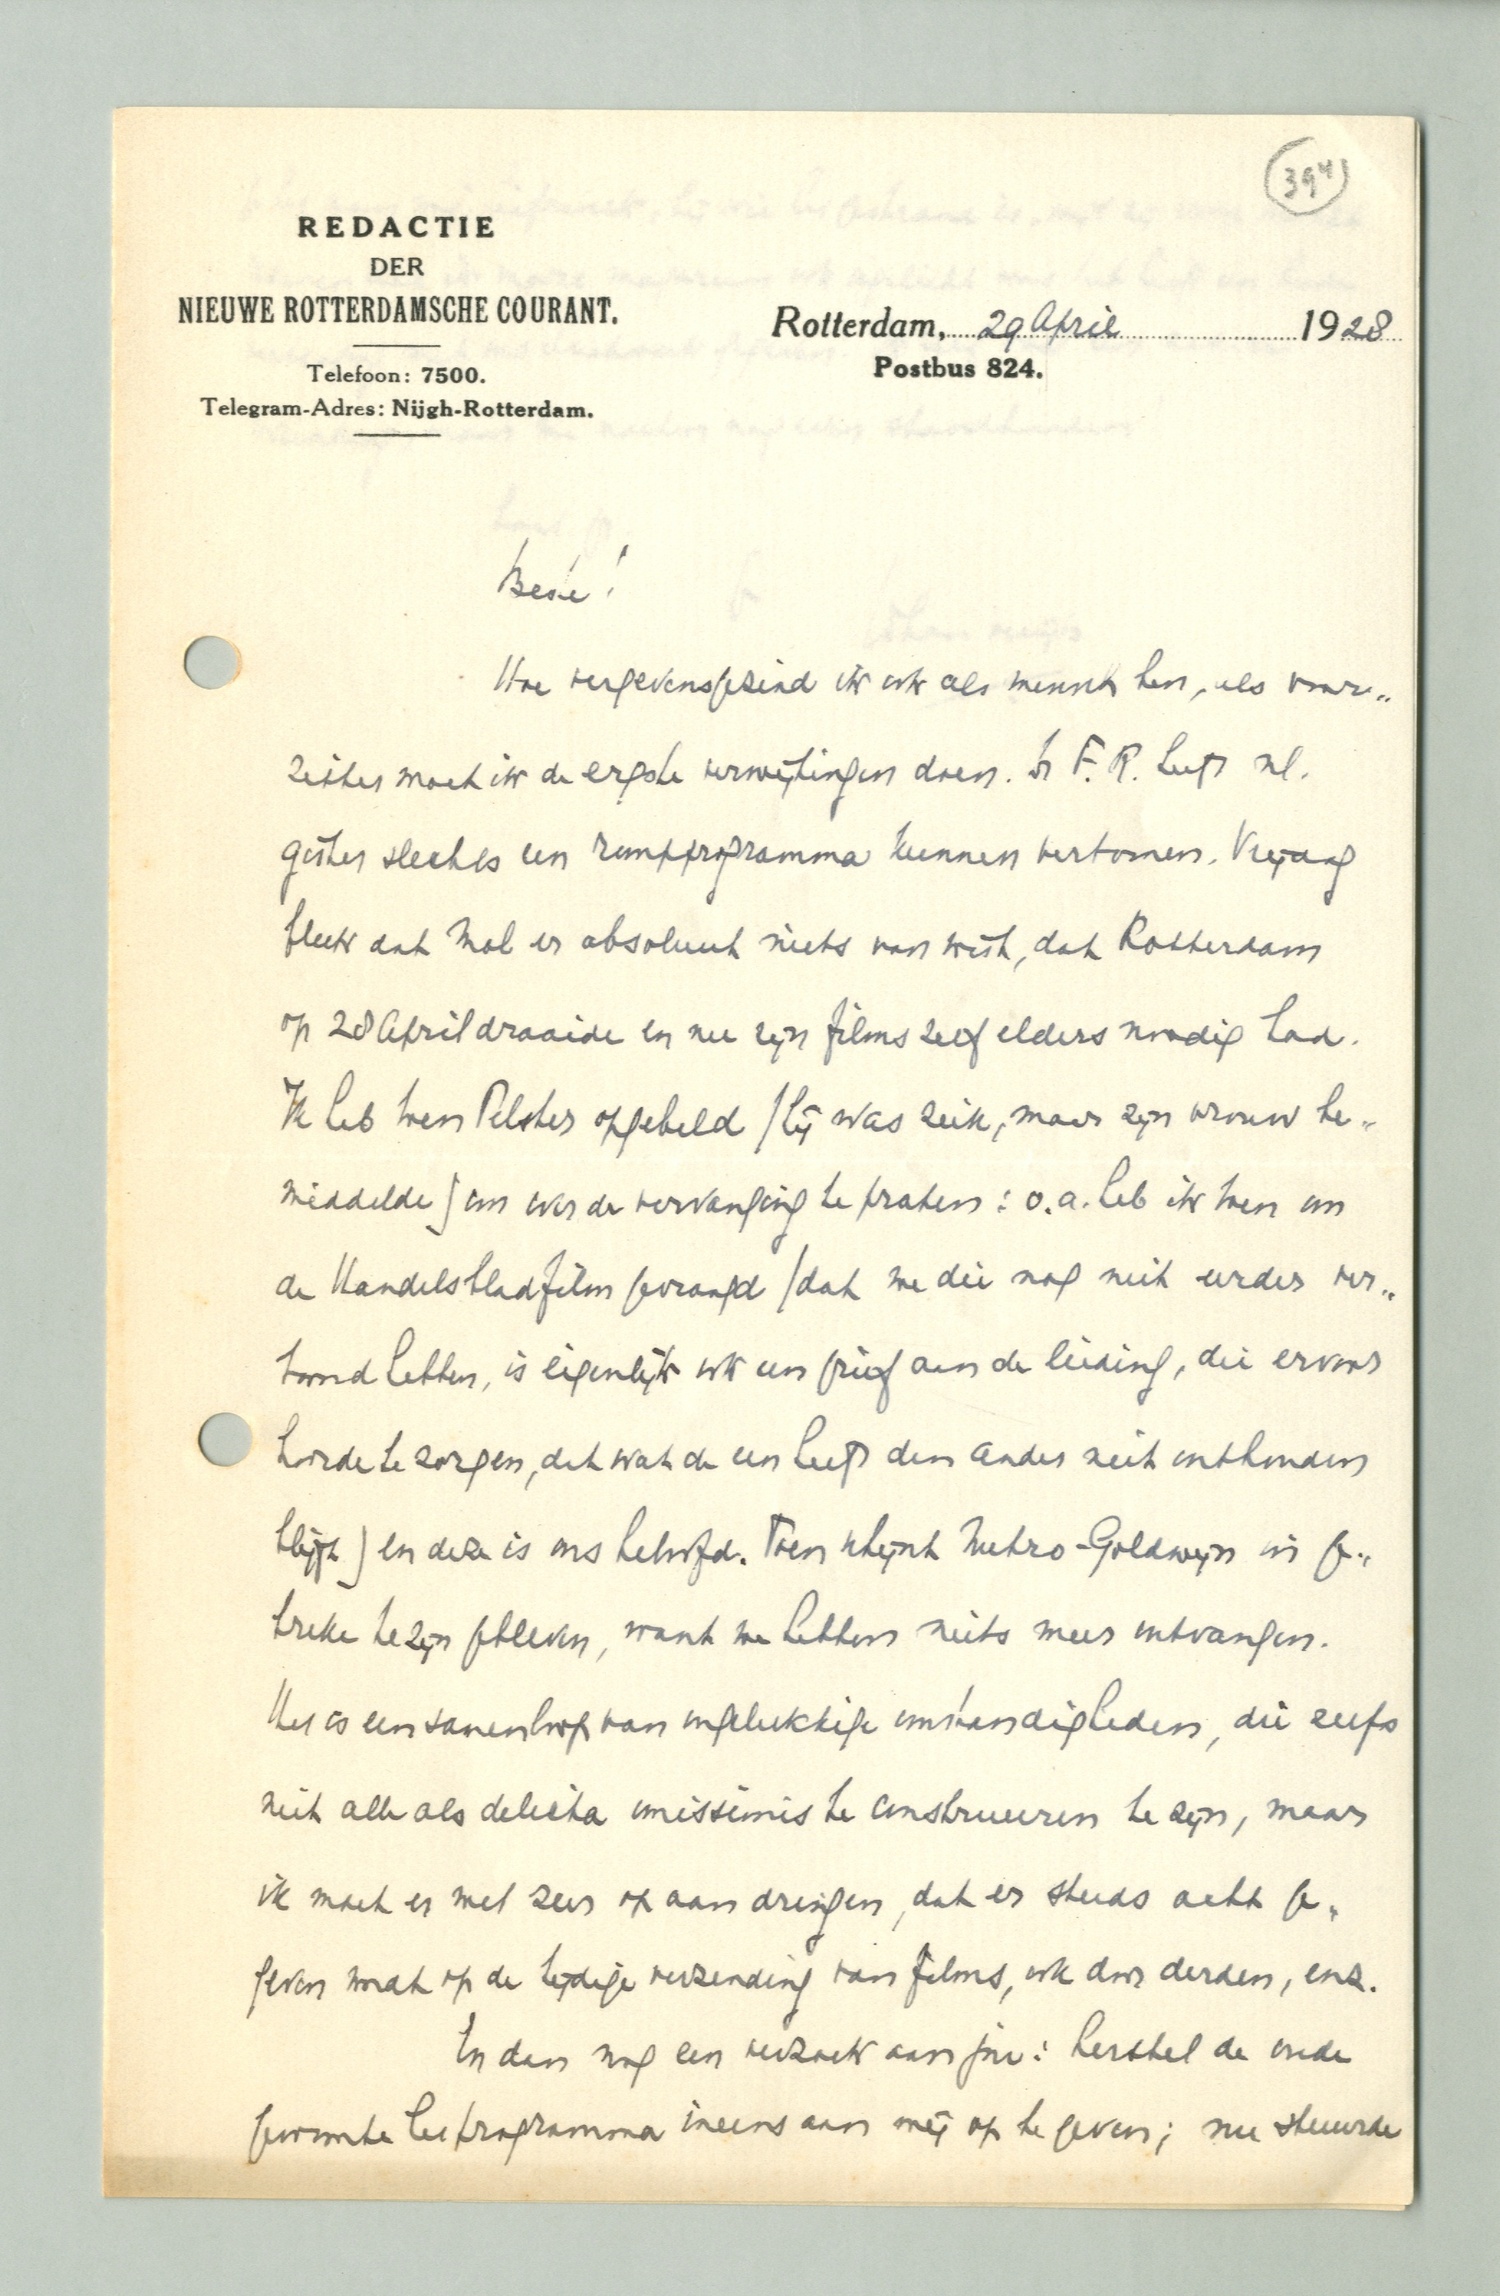 394
REDACTIE
DER
NIEUWE ROTTERDAMSCHE COURANT.
Telefoon: 7500.
Telegram-Adres: Nijgh-Rotterdam.
Rotterdam, 29 April 1928
Postbus 824.
Hoe vergevensgezind ik ook als mensch ben, als voor„
zitter moet ik de ergste verwijtingen doen. F. R. heeft nl.
gister slechts een rompprogramma kunnen vertoonen. Vrijdag
bleek dat Mol er absoluut niets van wist, dat Rotterdam
op 28 April draaide en nu zijn films zelf elders noodig had.
Ik heb toen Pelster opgebeld (hij was ziek, maar zijn vrouw be„
middelde) om over de vervanging te praten: o.a. heb ik toen om
de Handelsbladfilm gevraagd (dat we die nog niet eerder ver„
toond hebben, is eigenlijk ook een grief aan de leiding, die ervoor
hoorde te zorgen, dat wat de een heeft den ander niet onthouden
blijft) en deze is ons beloofd. Toen schijnt Metro-Goldwyn in ge„
breke te zijn gebleven, want we hebben niets meer ontvangen.
Het is een samenloop van ongelukkige omstandigheden, die zelfs
niet alle als delicta omissionis te construeeren te zijn, maar
ik moet er wel zeer op aandringen, dat er steeds acht ge„
geven wordt op de tijdige verzending van films, ook door derden, enz.
En dan nog een verzoek aan jou: herstel de oude
gewoonte het programma ineens aan mij op te geven; nu stuurde